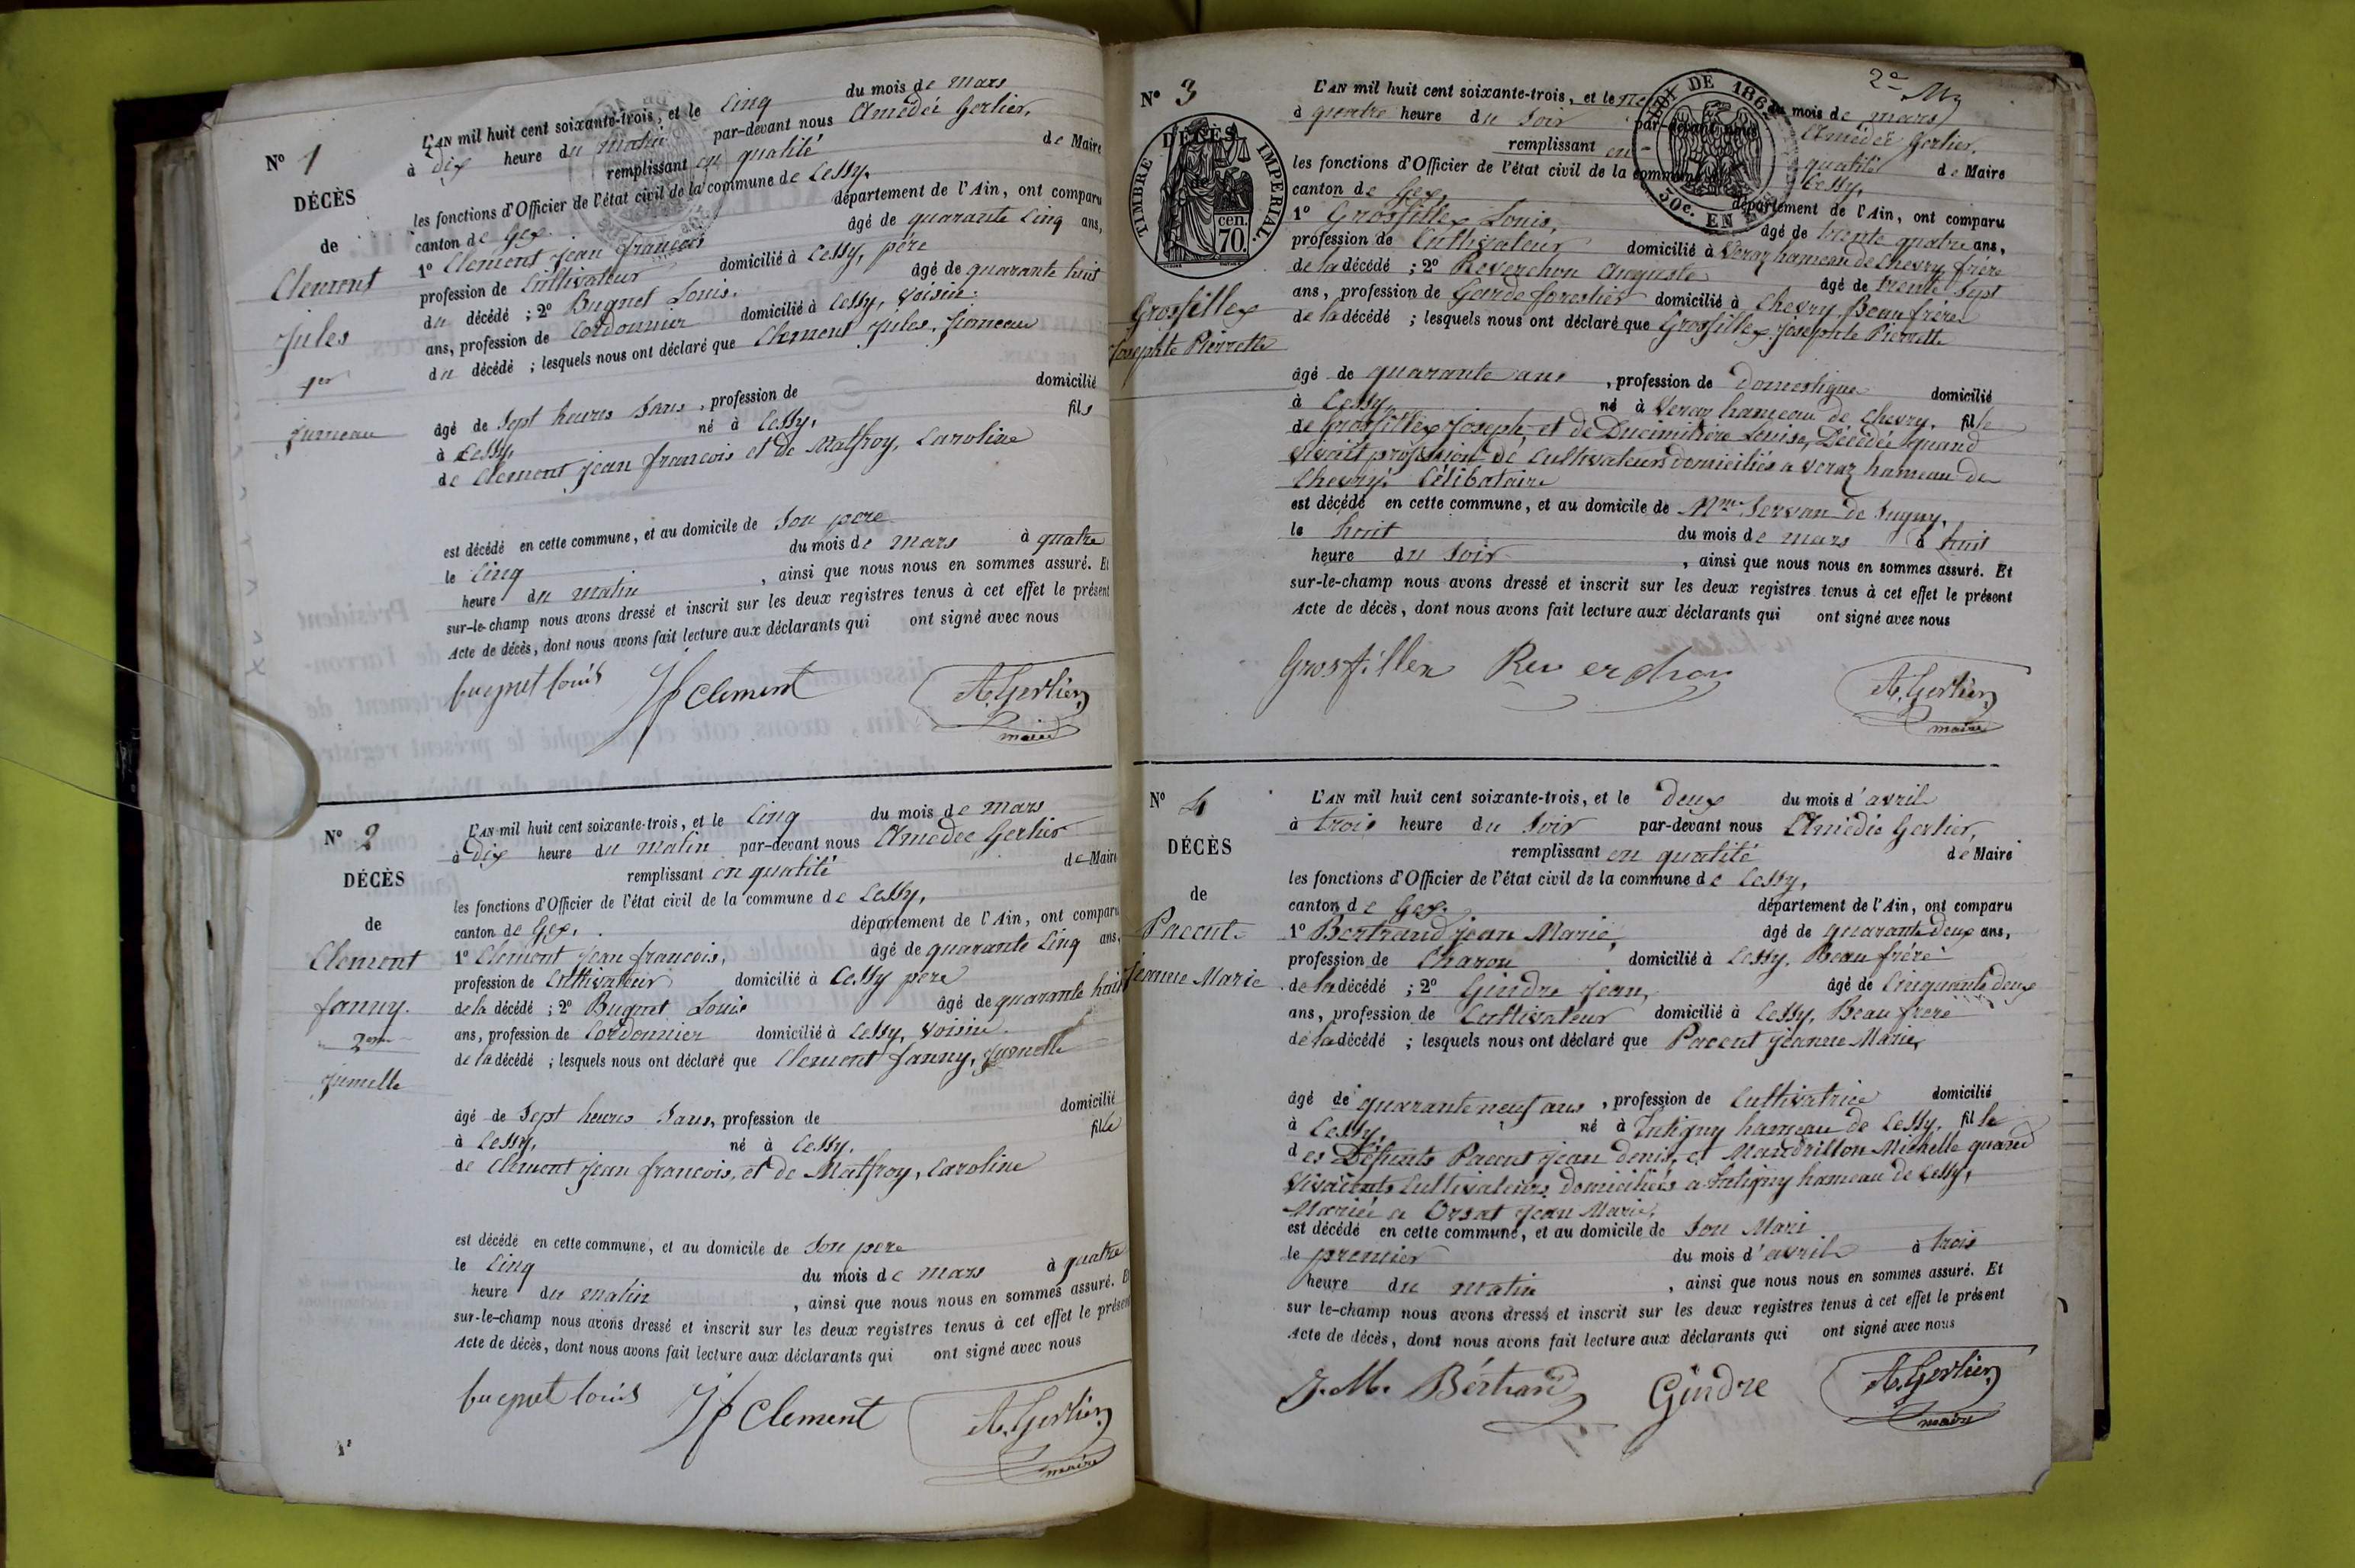 Nº 1
DÉCÈS
de
Clement
Jules
1er
jumeau
L'AN mil huit cent soixante-trois, et le cinq du mois de mars
à dix heure du matin par-devant nous Amédée Gerlier,
remplissant en qualité de Maire
les fonctions d'Officier de l'état civil de la commune de Cessy,
canton de Gex. département de l'Ain, ont comparu
1º Clement jean françois âgé de quarante cinq ans,
profession de Cultivateur domicilié à Cessy, père
du décédé ; 2º Bugnet Louis. âgé de quarante huit
ans, profession de Cordonnier domicilié à Cessy, voisin.
du décédé ; lesquels nous ont déclaré que Clement Jules, Jumeau
âgé de Sept heures Sans, profession de domicilié
à Cessy, né à Cessy, fils
de Clement jean francois et de Matfroy, Caroline
est décédé en cette commune, et au domicile de Son pere
le Cinq du mois de mars à quatre
heure du matin, ainsi que nous nous en sommes assuré. Et
sur-le-champ nous avons dressé et inscrit sur les deux registres tenus à cet effet le présent
Acte de décès, dont nous avons fait lecture aux déclarants qui ont signé avec nous
bugnet louis Jf Clement A. Gerlier
maire
Nº 2
DÉCÈS
de
Clement
fanny.
2eme
jumelle
L'AN mil huit cent soixante-trois, et le cinq du mois de mars
à dix heure du matin par-devant nous Amédée Gerlier
remplissant en qualité de Maire
les fonctions d'Officier de l'état civil de la commune de Cessy,
canton de Gex, département de l'Ain, ont comparu
1º Clement jean francois, âgé de quarante cinq ans,
profession de Cultivateur domicilié à Cessy pere
de la décédé ; 2º Bugnet Louis âgé de quarante huit
ans, profession de Cordonnier domicilié à Cessy, voisin.
de la décédé ; lesquels nous ont déclaré que Clement fanny, jumelle
âgé de Sept heures Sans, profession de domicilié
à Cessy, né à Cessy, fille
de Clement jean francois, et de Matfroy, Caroline
est décédé en cette commune, et au domicile de Son pere
le Cinq du mois de mars à quatre
heure du matin, ainsi que nous nous en sommes assuré. Et
sur-le-champ nous avons dressé et inscrit sur les deux registres tenus à cet effet le présent
Acte de décès, dont nous avons fait lecture aux déclarants qui ont signé avec nous
bugnet louis Jf Clement A. Gerlier
maire
2e
Nº 3
DÉCÈS
de
TIMBRE IMPÉRIAL.
70. cen.
Grosfillex
Josephte Pierrette
L'AN mil huit cent soixante-trois, et le du mois de mars
à quatre heure du Soir par-devant nous Amédée Gerlier.
remplissant en qualité de Maire
les fonctions d'Officier de l'état civil de la commune de Cessy,
canton de Gex. département de l'Ain, ont comparu
1º Grosfillex Louis, âgé de trente quatre ans,
profession de Cultivateur domicilié à Veraz hameau de Chevry frère
de la décédé ; 2º Reverchon Auguste âgé de trente Sept
ans, profession de Garde forestier domicilié à Chevry Beau frère
de la décédé ; lesquels nous ont déclaré que Grosfillex Josephte Pierrette
âgé de quarante ans, profession de Domestique domicilié
à Cessy, né à Veraz hameau de Chevry, fille
de Grosfillex Joseph, et de Ducimitière Louise, Décédée quand
vivait profession de Cultivateurs domiciliés a veraz hameau de
Chevry. Célibataire
est décédé en cette commune, et au domicile de Mme Servan de Sugny,
le huit du mois de mars à huit
heure du Soir, ainsi que nous nous en sommes assuré. Et
sur-le-champ nous avons dressé et inscrit sur les deux registres tenus à cet effet le présent
Acte de décès, dont nous avons fait lecture aux déclarants qui ont signé avec nous
Grosfillex Reverchon A. Gerlier
maire
Nº 4
DÉCÈS
de
Pacout
Jeanne Marie
L'AN mil huit cent soixante-trois, et le deux du mois d'avril
à trois heure du Soir par-devant nous Amédée Gerlier,
remplissant en qualité de Maire
les fonctions d'Officier de l'état civil de la commune de Cessy,
canton de Gex. département de l'Ain, ont comparu
1º Bertrand jean Marie, âgé de quarante deux ans,
profession de Charon domicilié à Cessy. Beau frère
de la décédé ; 2º Gindre jean, âgé de Cinquante deux
ans, profession de Cultivateur domicilié à Cessy, Beau frere
de la décédé ; lesquels nous ont déclaré que Pacout jeanne Marie,
âgé de quarante neuf ans, profession de Cultivatrice domicilié
à Cessy, né à Tutigny hameau de Cessy, fille
des Défunts Pacout jean denis, et Mandrillon Michelle quand
vivaients Cultivateurs domiciliés a Tutigny hameau de Cessy,
Mariée a Orsat jean Marie,
est décédé en cette commune, et au domicile de Son Mari
le premier du mois d'avril à trois
heure du matin, ainsi que nous nous en sommes assuré. Et
sur le-champ nous avons dressé et inscrit sur les deux registres tenus à cet effet le présent
Acte de décès, dont nous avons fait lecture aux déclarants qui ont signé avec nous
J. M. Bértrand Gindre A. Gerlier
maire